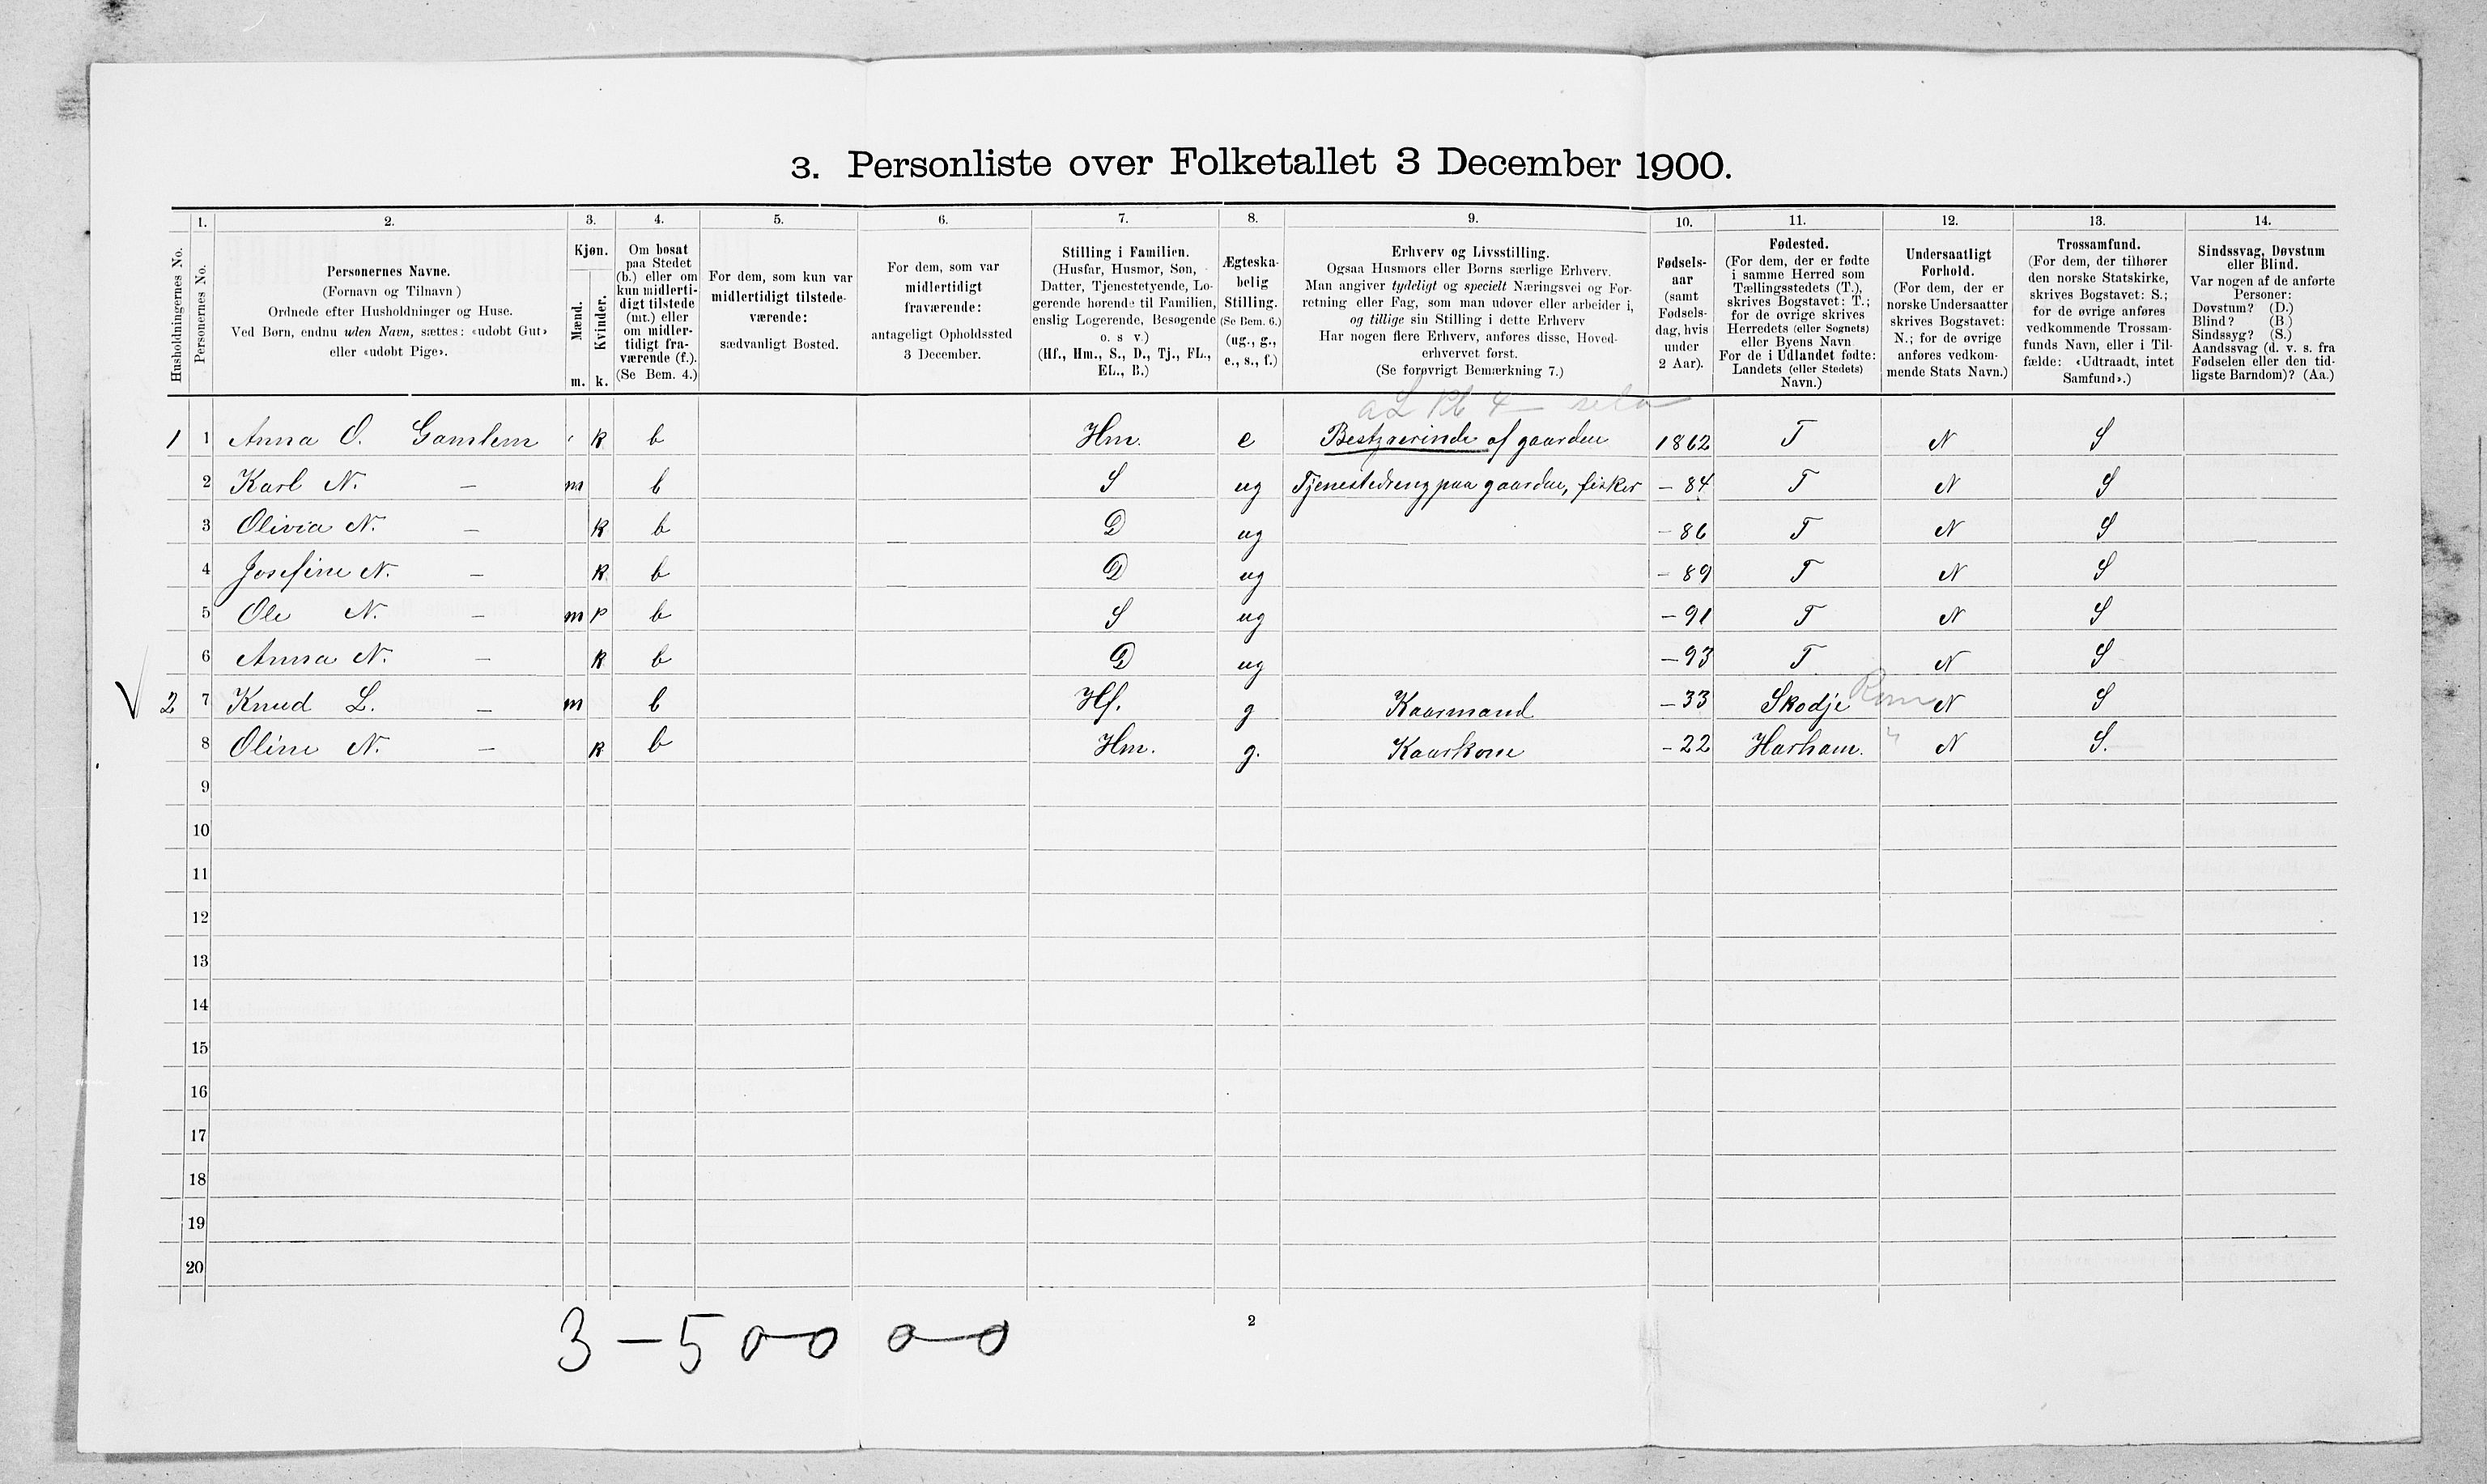 3. Personliste over Folketallet 3 December 1900.
1. 2. 3. 4. 5. 6. 7. 8. 9. 10. 11. 12. 13. 14.
Husholdningernes No.
Personernes No.
Personernes Navne.
(Fornavn og Tilnavn )
Ordnede efter Husholdninger og Huse.
Ved Børn, endnu uden Navn, sættes: «udøbt Gut»
eller «udøbt Pige».
Kjøn.
Mænd.
Kvinder.
m. k.
Om bosat
paa Stedet
(b.) eller om
kun midlerti-
digt tilstede
(mt.) eller
om midler-
tidigt fra-
værende (f.).
(Se Bem. 4.)
For dem, som kun var
midlertidigt tilstede-
værende:
sædvanligt Bosted.
For dem, som var
midlertidigt
fraværende:
antageligt Opholdssted
3 December.
Stilling i Familien.
(Husfar, Husmor, Søn,
Datter, Tjenestetyende, Lo-
gerende hørende til Familien,
enslig Logerende, Besøgende
o. s v.)
(Hf., Hm., S., D., Tj., FL.,
EL., B.)
Ægteska-
belig
Stilling.
(Se Bem. 6.)
(ug., g.,
e., s., f.)
Erhverv og Livsstilling.
Ogsaa Husmors eller Børns særlige Erhverv.
Man angiver tydeligt og specielt Næringsvei og For-
retning eller Fag, som man udøver eller arbeider i,
og tillige sin Stilling i dette Erhverv
Har nogen flere Erhverv, anføres disse, Hoved-
erhvervet først.
(Se forøvrigt Bemærkning 7.)
Fødsels-
aar
(samt
Fødsels-
dag, hvis
under
2 Aar).
Fødested.
(For dem, der er fødte
i samme Herred som
Tællingsstedets (T.),
skrives Bogstavet: T.;
for de øvrige skrives
Herredets (eller Sognets)
eller Byens Navn
For de i Udlandet fødte:
Landets (eller Stedets)
Navn.)
Undersaatligt
Forhold.
(For dem, der er
norske Undersaatter
skrives Bogstavet:
N.; for de øvrige
anføres vedkom-
mende Stats Navn.)
Trossamfund.
(For dem, der tilhører
den norske Statskirke,
skrives Bogstavet: S.;
for de øvrige anføres
vedkommende Trossam-
funds Navn, eller i Til-
fælde: «Udtraadt, intet
Samfund».)
Sindssvag, Døvstum
eller Blind.
Var nogen af de anførte
Personer:
Døvstum? (D.)
Blind? (B)
Sindssyg? (S.)
Aandssvag (d. v. s. fra
Fødselen eller den tid-
ligste Barndom)? (Aa.)
1 1 Anna O. Gamlem k b Hm. e Bestyrerinde af gaarden 1862 T N S
2 Karl N. — m b S ug Tjenestedreng paa gaarden, fisker — 84 T N S
3 Olivia N. — k b D ug — 86 T N S
4 Josefine N. — k b D ug — 89 T N S
5 Ole N. — m b S ug — 91 T N S
6 Anna N. — k b D ug — 93 T N S
2 7 Knud L. — m b Hf. g Kaarmand — 33 Skodje N S
8 Oline N. — k b Hm. g. Kaarkone — 22 Harham. N S.
9
10
11
12
13
14
15
16
17
18
19
20
3 — 5 0 — 0 0 — 0
2